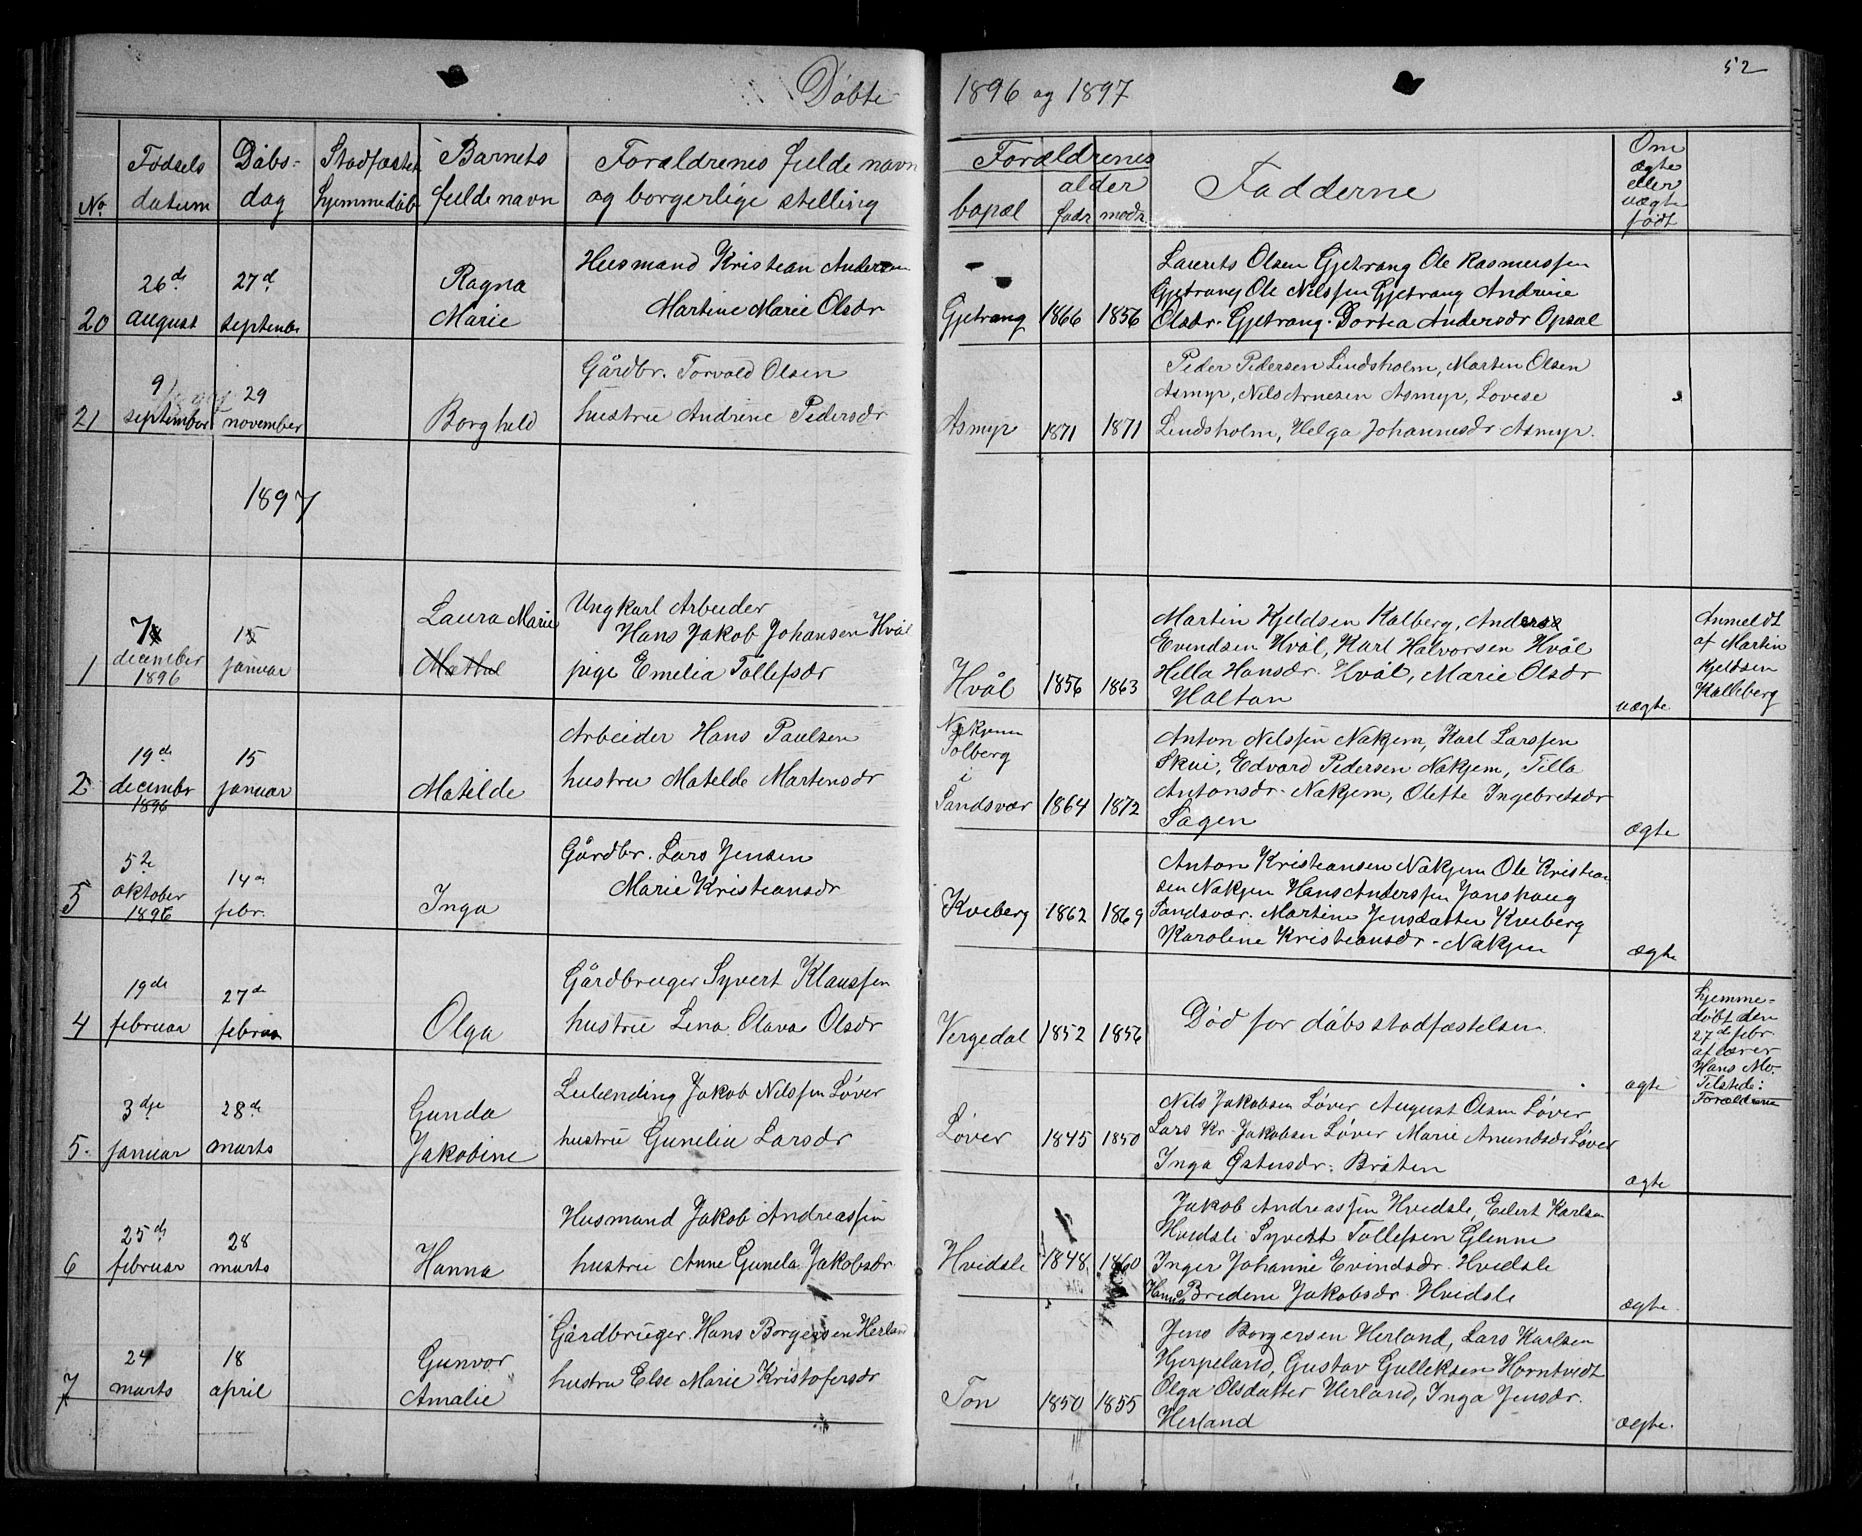 Döbte 1896 og 1897
52
No.
Födsels datum
Döbs- dag
Stadfæstet hjemmedåb
Barnets fulde navn
Forældrenes fulde navn og borgerlige stelling
Forældrenes
bopæl
alder
fadr modr.
Fadderne
Om ægte eller uægte födt
20
26de august
27d septembr
Ragna Marie
Husmand Kristian Andersen
Martine Marie Olsdr
Gjetrang
1866
1856
Laurits Olsen Gjetrang Ole Rasmussen
Gjetrang Ole Nilssen Gjetrang Andrine
Olsdr. Gjetrang. Dortea Andersdr Opsal
21
9/ september
29 november
Borghild
Gårdbr. Torvald Olsen
hustru Andrine Pedersdr
Asmyr
1871
1871
Peder Pedersen Lindsholm, Martin Olsen
Asmyr, Nils Arnesen Asmyr, Lovise
Lindsholm, Helga Johannesdr Asmyr.
1897
1
7 december 1896
15 januar
Laura Marie
Ungkarl Arbeider
Hans Jakob Johansen Hvål
pige Emelia Tollefsdr
Hvål
1856
1863
Martin Kjeldsen Kalberg, Anders
Evindsen Hvål, Karl Halvorsen Hvål
Hella Hansdr. Hvål, Marie Olsdr
Holtan
uægte
Anmeldt
af Martin
Kjeldsen
Kalleberg
2
19de decembr 1896
15 januar
Matilde
Arbeider Hans Paulsen
hustru Matelde Martensdr
Nakjem
Tolberg
i
Sandsvær
1864
1872
Anton Nilssen Nakjem, Karl Larssen
Skue, Edvard Pedersen Nakjem, Tilla
Antonsdr. Nakjem, Olette Ingebretsdr
Sagen
ægte
3
5te oktober 1896
14de febr.
Inga
Gårdbr. Lars Jensen
Marie Kristiansdr
Kveberg
1862
1869
Anton Kristiansen Nakjem Ole Kristian
sen Nakjem Hans Anderssen Jonshaug
Sandsvær. Martine Jensdatter Kveberg
Karoline Kristiansdr. Nakjem
ægte
4
19de februar
27de februar
Olga
Gårdbruger Syvert Klaussen
hustru Lena Olava Olsdr
Vergedal
1852
1856
Død før dåbsstadfæstelsen.
ægte
hjemme-
döbt den
27de febr.
af lærer
Hans Mo.
Tilstede:
Forældrene
5.
3dje januar
28de marts
Gunda Jakobine
Lulænding Jakob Nilssen Løver
hustru Gunelia Larsdr
Løver
1845
1850
Nils Jakobsen Løver August Olsen Løver
Lars Kr. Jakobsen Løver Marie Amundsdr Løver
Inga Østensdr. Bråten
ægte
6
25de februar
28 marts
Hanna
Husmand Jakob Andreassen
hustru Anne Gunela Jakobsdr
Hvidsle
1848
1860
Jakob Andreassen Hvidsle, Eilert Karlsen
Hvidsle Syvert Tollefsen Glenne
Inger Johanne Evindsdr. Hvidsle
Hanna Bredine Jakobsdr. Hvidsle
ægte.
7
24 marts
18 april
Gunvor Amalie
Gårdbruger. Hans Borgersen Herland
hustru Else Marie Kristofersdr
Ton
1850
1855
Jens Borgersen Herland, Lars Karlsen
Hjerpeland, Gustav Gulleksen Horntvedt
Olga Olsdatter Herland, Inga Jensdr.
Herland
ægte.